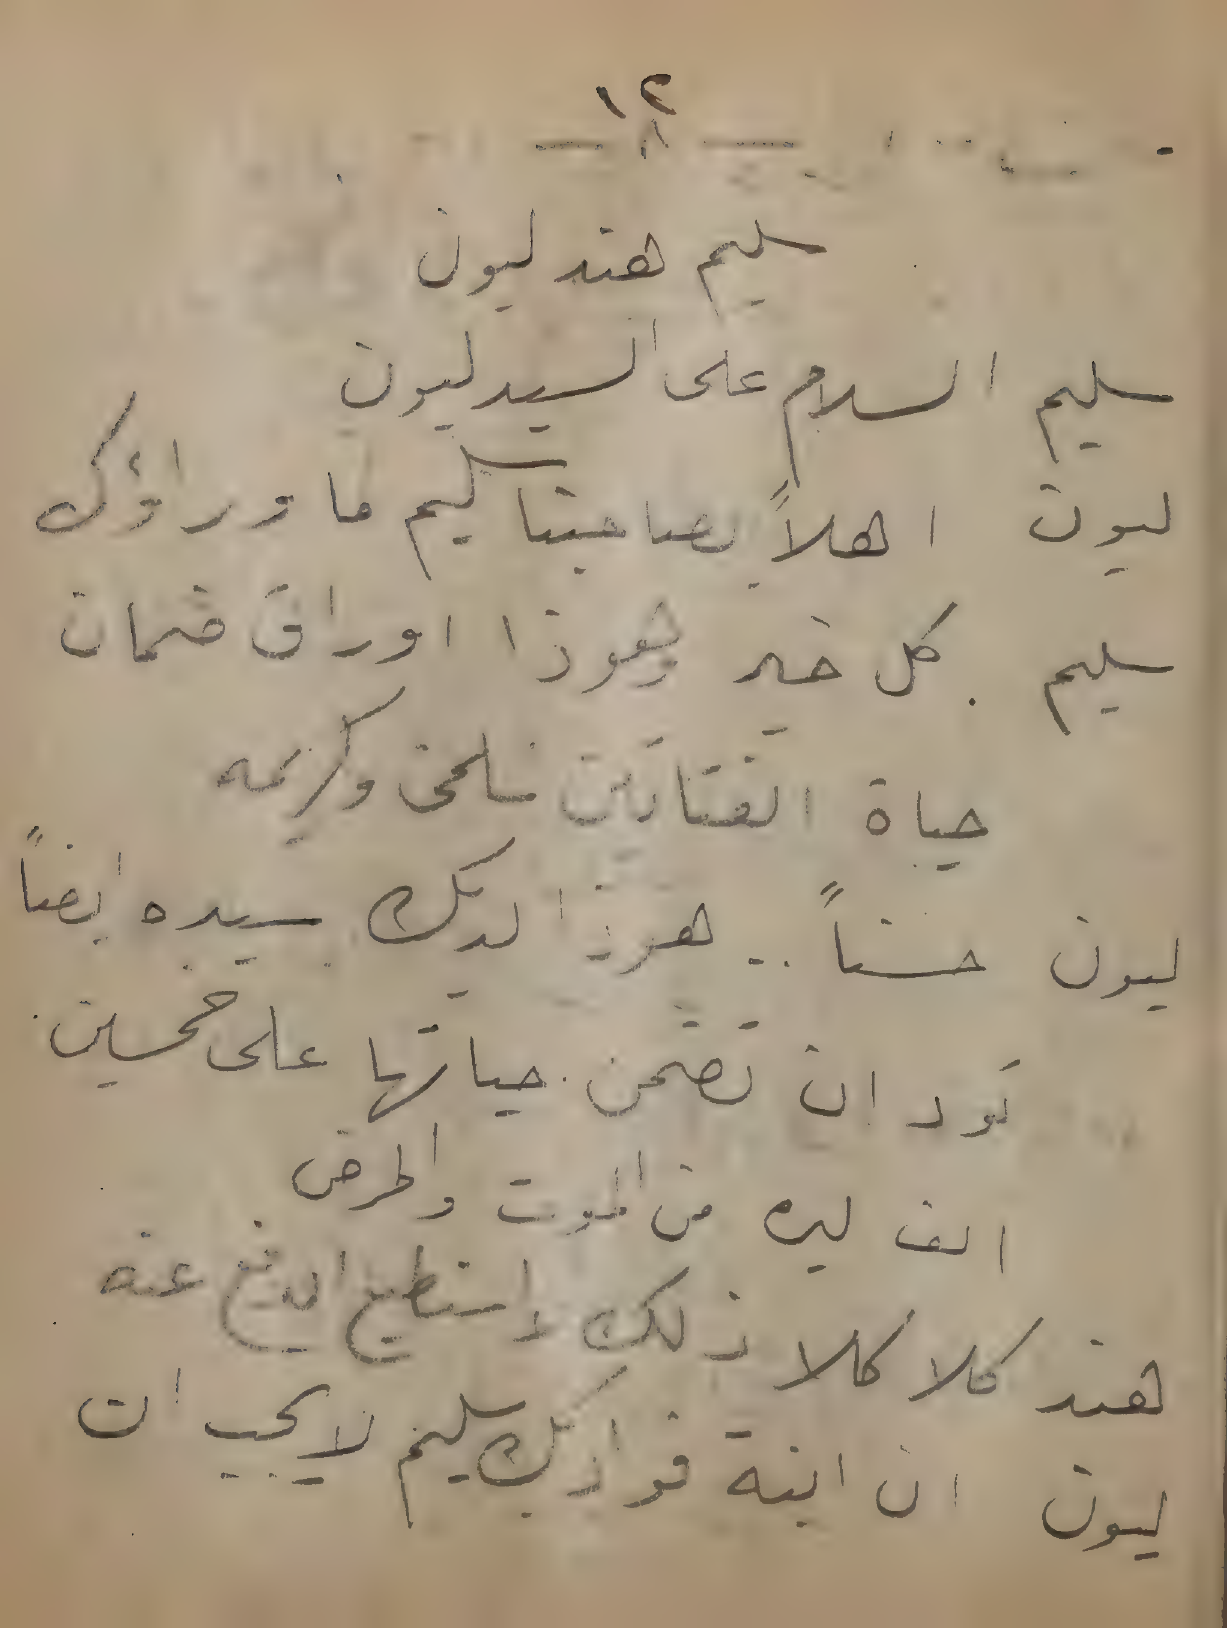 ١٢
— ٨ —
سليم هند ليون
سليم السلام على السيد ليون
ليون اهلاً بصاحبنا سليم ما وراؤك
سليم . كل خير وهوذا اوراق ضمان
حياة الفتاتين سلمى وكريمه
ليون حسناً .. هوذا لديك سيده ايضاً
تود ان تضمن حياتها على خمسين
الف ليره من الموت والمرض
هند كلا كلا ذلك لا استطيع الدفع عنه
ليون ان ابنة فؤاد بك سليم لا يجب ان